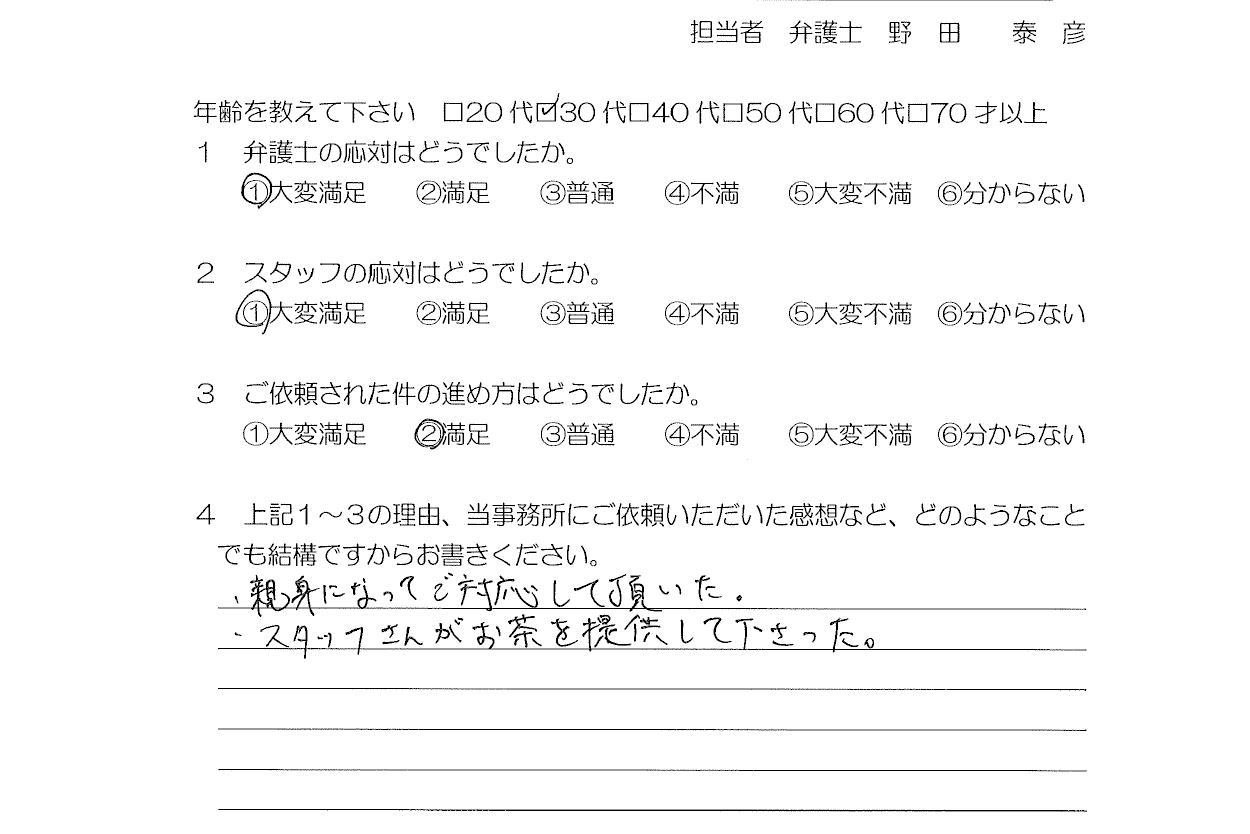 担当者 弁護士 野 田 泰 彦
年齢を教えて下さい □20代☑30代□40代□50代□60代□70才以上
1 弁護士の応対はどうでしたか。
①大変満足 ②満足 ③普通 ④不満 ⑤大変不満 ⑥分からない
2 スタッフの応対はどうでしたか。
①大変満足 ②満足 ③普通 ④不満 ⑤大変不満 ⑥分からない
3 ご依頼された件の進め方はどうでしたか。
①大変満足 ②満足 ③普通 ④不満 ⑤大変不満 ⑥分からない
4 上記1~3の理由、当事務所にご依頼いただいた感想など、どのようなこと
でも結構ですからお書きください。
・親身になってご対応して頂いた.
・スタッフさんがお茶を提供して下さった。